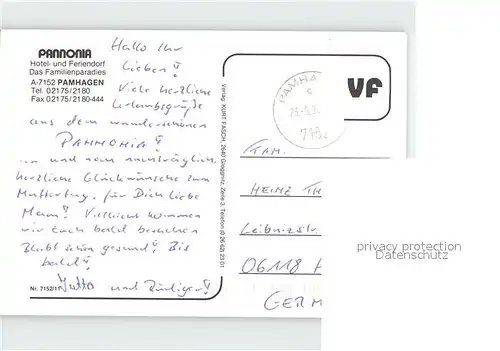 PANNONIA
Hotel- und Feriendorf
Das Familienparadies
A-7152 PAMHAGEN
Tel. 02175/2180
Fax 02175/2180-444
Hallo Ihr
Lieben!
Viele herzliche
Urlaubsgrüße
aus dem wunderschönen
PANNONIA!
... und noch nachträglich
herzliche Glückwünsche zum
Muttertag, für Dich liebe
Mami! Vielleicht kommen
wir Euch bald besuchen
Bleibt schön gesund! Bis
bald!
Jutta und Rüdiger!
Nr. 7152/1
Verlag KURT FASCH, 2640 Gloggnitz, Zeile 3, Telefon (0 26 62) 23 01
PAMHA
c
7152
VF
FAM.
HEINZ TH
Leibnizstr
06118 H
GERM
privacy protection